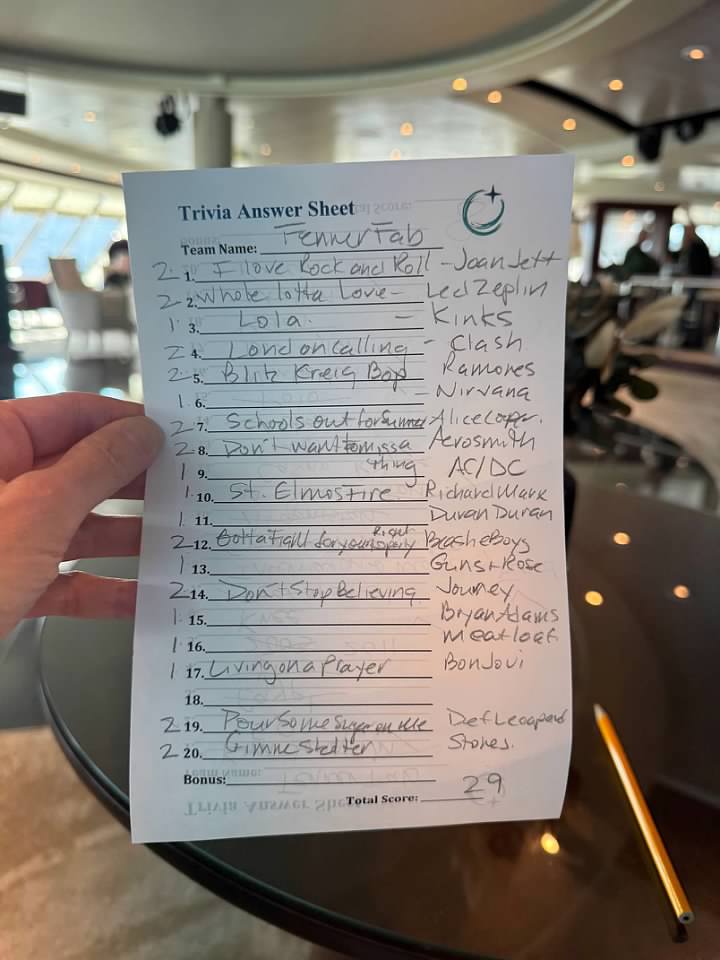 Trivia Answer Sheet
Team Name: FennerFab
2 1. I love Rock and Roll - Joan Jett
2 2. Whole lotta Love - Led Zeplin
1 3. Lola. - Kinks
2 4. London Calling - Clash
2 5. Blitz Kreig Bop Ramones
1 6. - Nirvana
2 7. Schools out for Summer Alice Cooper.
2 8. Don't want to miss a Aerosmith
thing
1 9. AC/DC
1 10. St. Elmos Fire Richard Marx
1 11. Duran Duran
Right
2 12. Gotta Fight for your to party Beastie Boys
1 13. Guns + Rose
2 14. Don't Stop Believing Journey
1 15. Bryan Adams
1 16. meatloaf
1 17. Living on a Prayer Bon Jovi
18.
2 19. Pour Some Sugar on Me Def Leopard
2 20. Gimme Shelter Stones.
Bonus:
Total Score: 29